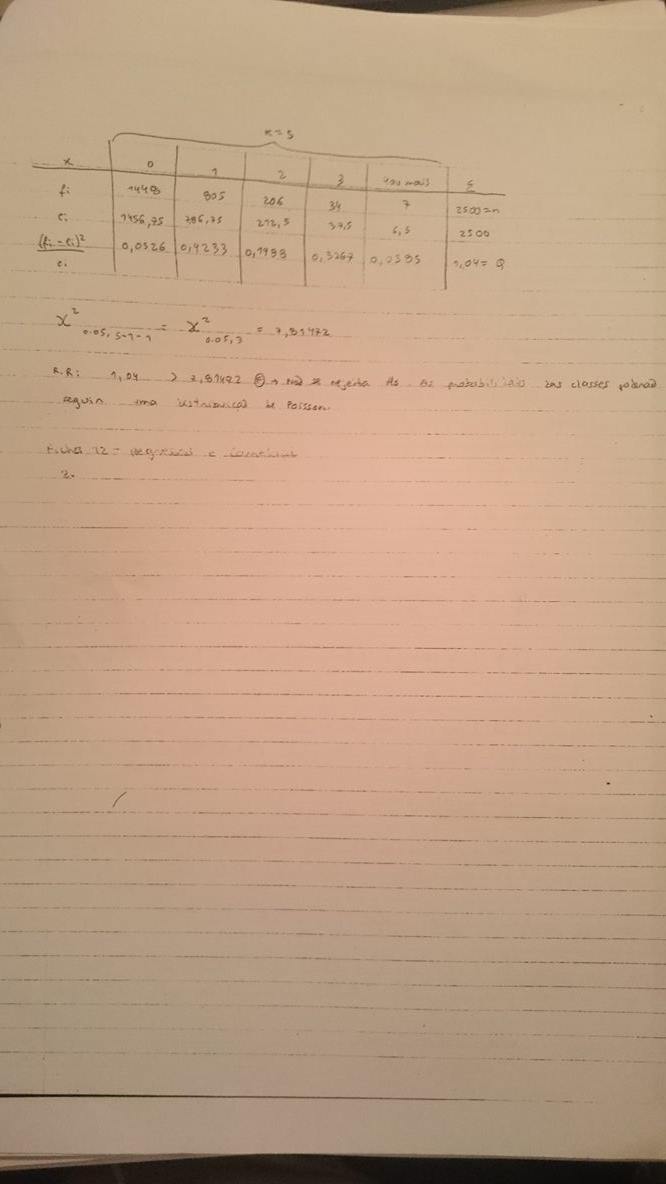 k = 5
x 0 1 2 3 4 ou mais Σ
fi 1448 805 206 34 7 2500 = n
ei 1456,75 786,75 212,5 37,5 6,5 2500
(fi - ei)² / ei 0,0526 0,4233 0,1988 0,3267 0,0385 1,04 = Q
x² 0.05, 5-1-1 = x² 0.05, 3 = 7,81472
R.R: 1,04 > 7,81472 não se rejeita H0 As probabilidades das classes poderão
seguir uma distribuição de Poisson.
Ficha 12 - Regressão e
2.